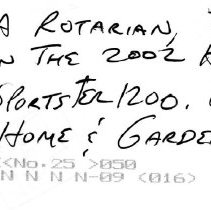 A ROTARIAN,
N THE 2002
SPORTSTER 1200.
HOME & GARDE
<No. 25 >050
N N N N-09 (016)